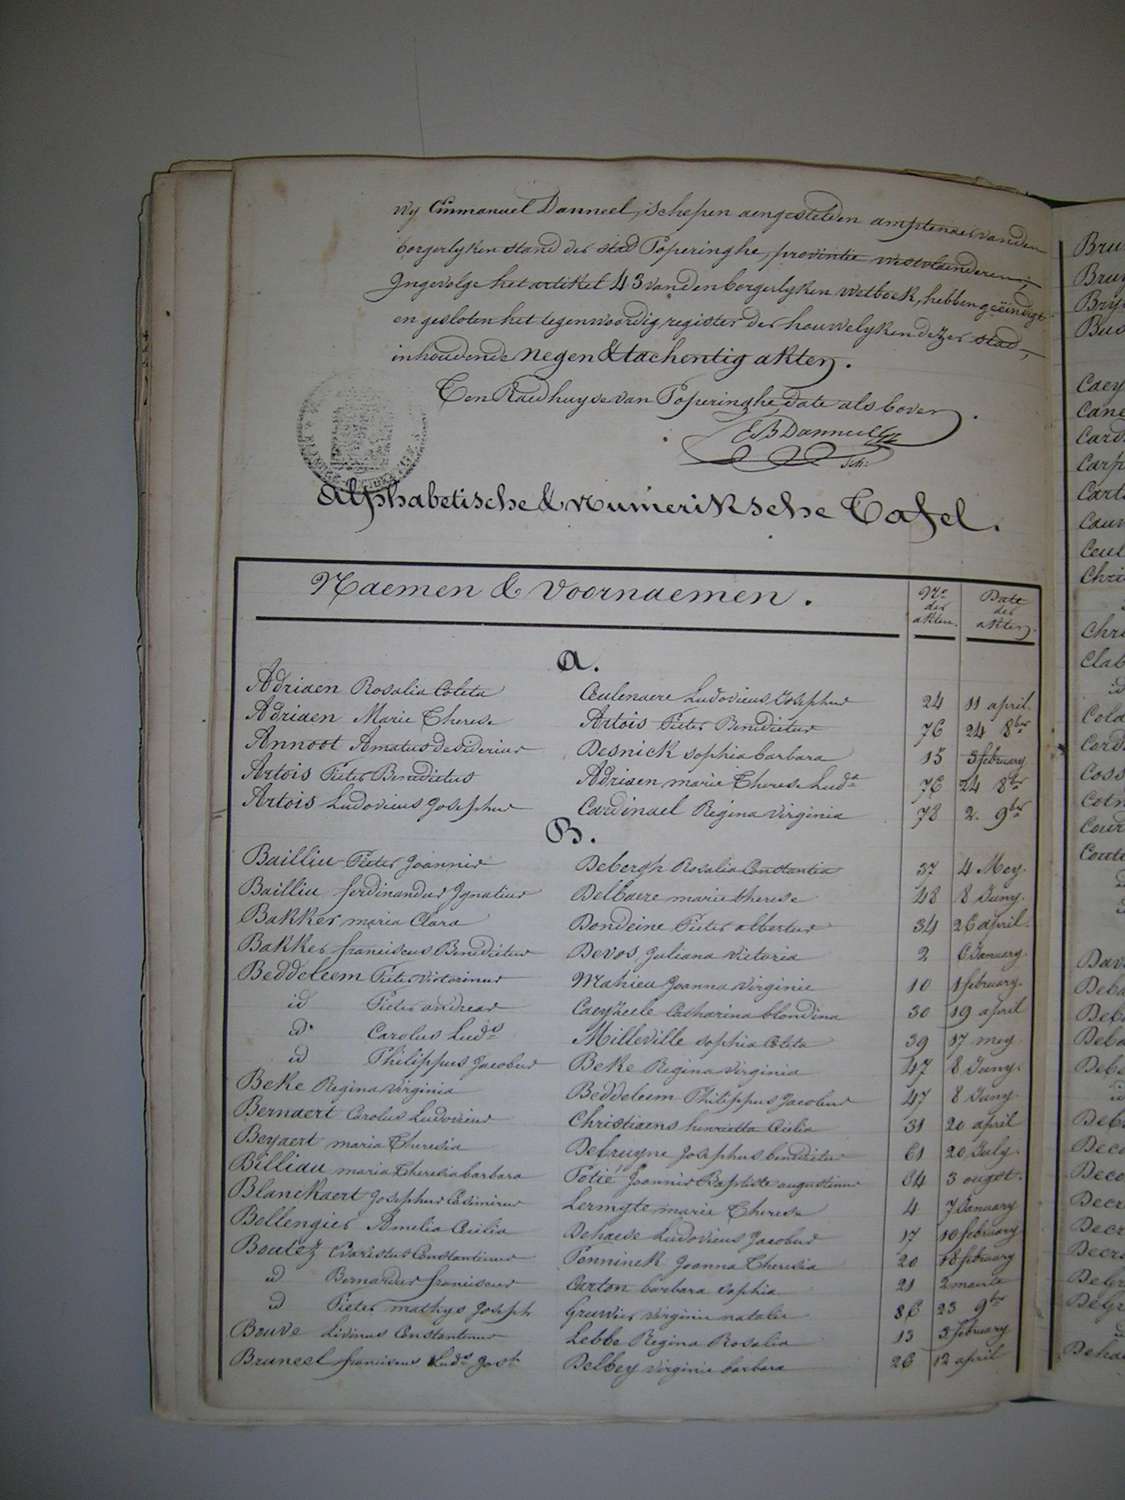 Wy Emmanuel Danneel, schepen aengestelden amptenaer van den
borgerlyken stand der stad Poperinghe, provintie westvlaenderen,
Ingevolge het artikel 45 van den borgerlyken wetboek, hebben geëindigt
en gesloten het tegenwoordig register der houwelyken dezer stad,
inhoudende negen & tachentig akten.
Ten Raedhuyse van Poperinghe date als boven.
E. B. Danneel
Sch:
Alphabetische & Numeriksche Tafel.
Naemen & Voornaemen. Nrs der akten. Date der akten.
A.
Adriaen Rosalia Coleta Ceulenaere Ludovicus Josephus 24 11 april.
Adriaen Marie Therese Artois Pieter Benedictus 76 24 8ber
Annoot Amatus desiderius Desnick Sophia barbara 15 5 february
Artois Pieter Benedictus Adriaen marie Therese Ludca 76 24 8ber
Artois Ludovicus Josephus Cardinael Regina Virginia 78 2. 9ber
B.
Bailliu Pieter Joannes Debergh Rosalia Constantia 37 4 Mey.
Bailliu ferdinandus Ignatius Delbaere marie therese 48 8 Juny.
Bakker maria Clara Dondeine Pieter albertus 34 26 april.
Bakker franciscus Benedictus Devos Juliana Victoria 2 6 January.
Beddeleem Pieter Victorinus Mahieu Joanna Virginie 10 1 february.
id Pieter andreas Caeyzeele Catharina blondina 30 19 april
id. Carolus Ludcs Milleville Sophia Coleta 39 17 mey.
id Philippus Jacobus Beke Regina Virginia 47 8 Juny.
Beke Regina Virginia Beddeleem Philippus Jacobus 47 8 Juny.
Bernaert Carolus Ludovicus Christiaens henrietta Cecilia 31 20 april
Beyaert maria Theresia Debruyne Josephus benedictus 61 20 July.
Billiau maria Theresia barbara Potié Joannes Baptiste augustinus 64 3 ougst.
Blanckaert Josephus Casimirus Lermyte marie Therese 4 7 January
Bellengier Amelia Cecilia Dehaese Ludovicus Jacobus 17 10 february
Boutez Evaristus Constantinus Penninck Joanna Theresia 20 18 february
id Bernardus franciscus Carton barbara Sophia 21 2 maerte
id Pieter mathys Joseph Gruwier Virginie natalie 86 23 9ber
Bouve Livinus Constantinus Lebbe Regina Rosalia 13 3 february
Bruneel franciscus Ludcs Josh Delbey Virginie barbara 26 12 april
Bru
Bru
Bry
Bus
Caey
Cane
Card
Carp
Cart
Cauw
Ceul
Chri
Chri
Clab
id
Cola
Cord
Coss
Cour
Coute